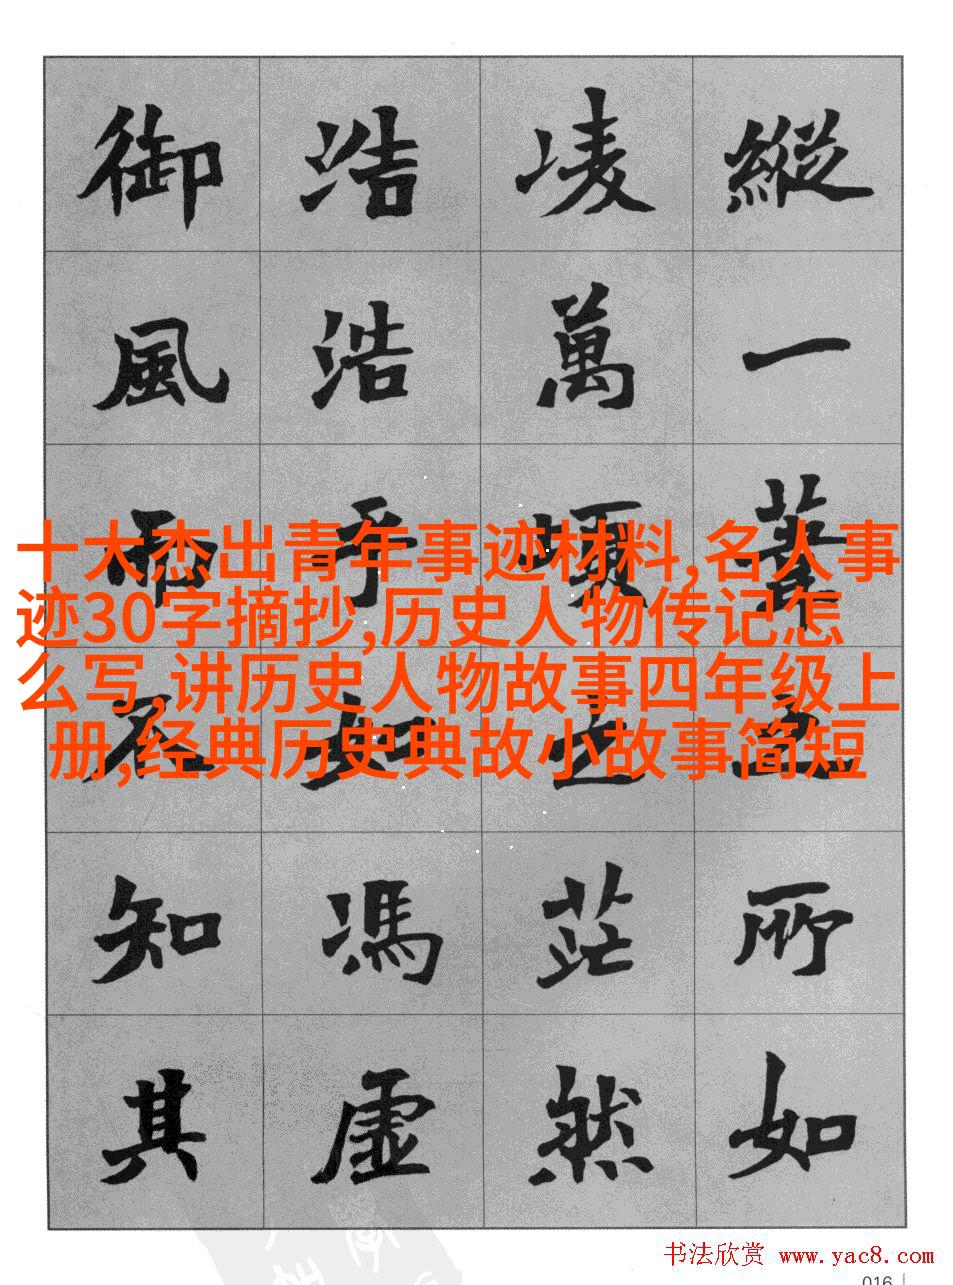 縱一葦之所如
凌萬頃之茫然
浩浩乎如馮虛
御風而不知其
十大杰出青年事迹材料,名人事
迹30字摘抄,历史人物传记怎
么写,讲历史人物故事四年级上
册,经典历史典故小故事简短
书法欣赏 www.yac8.com
016